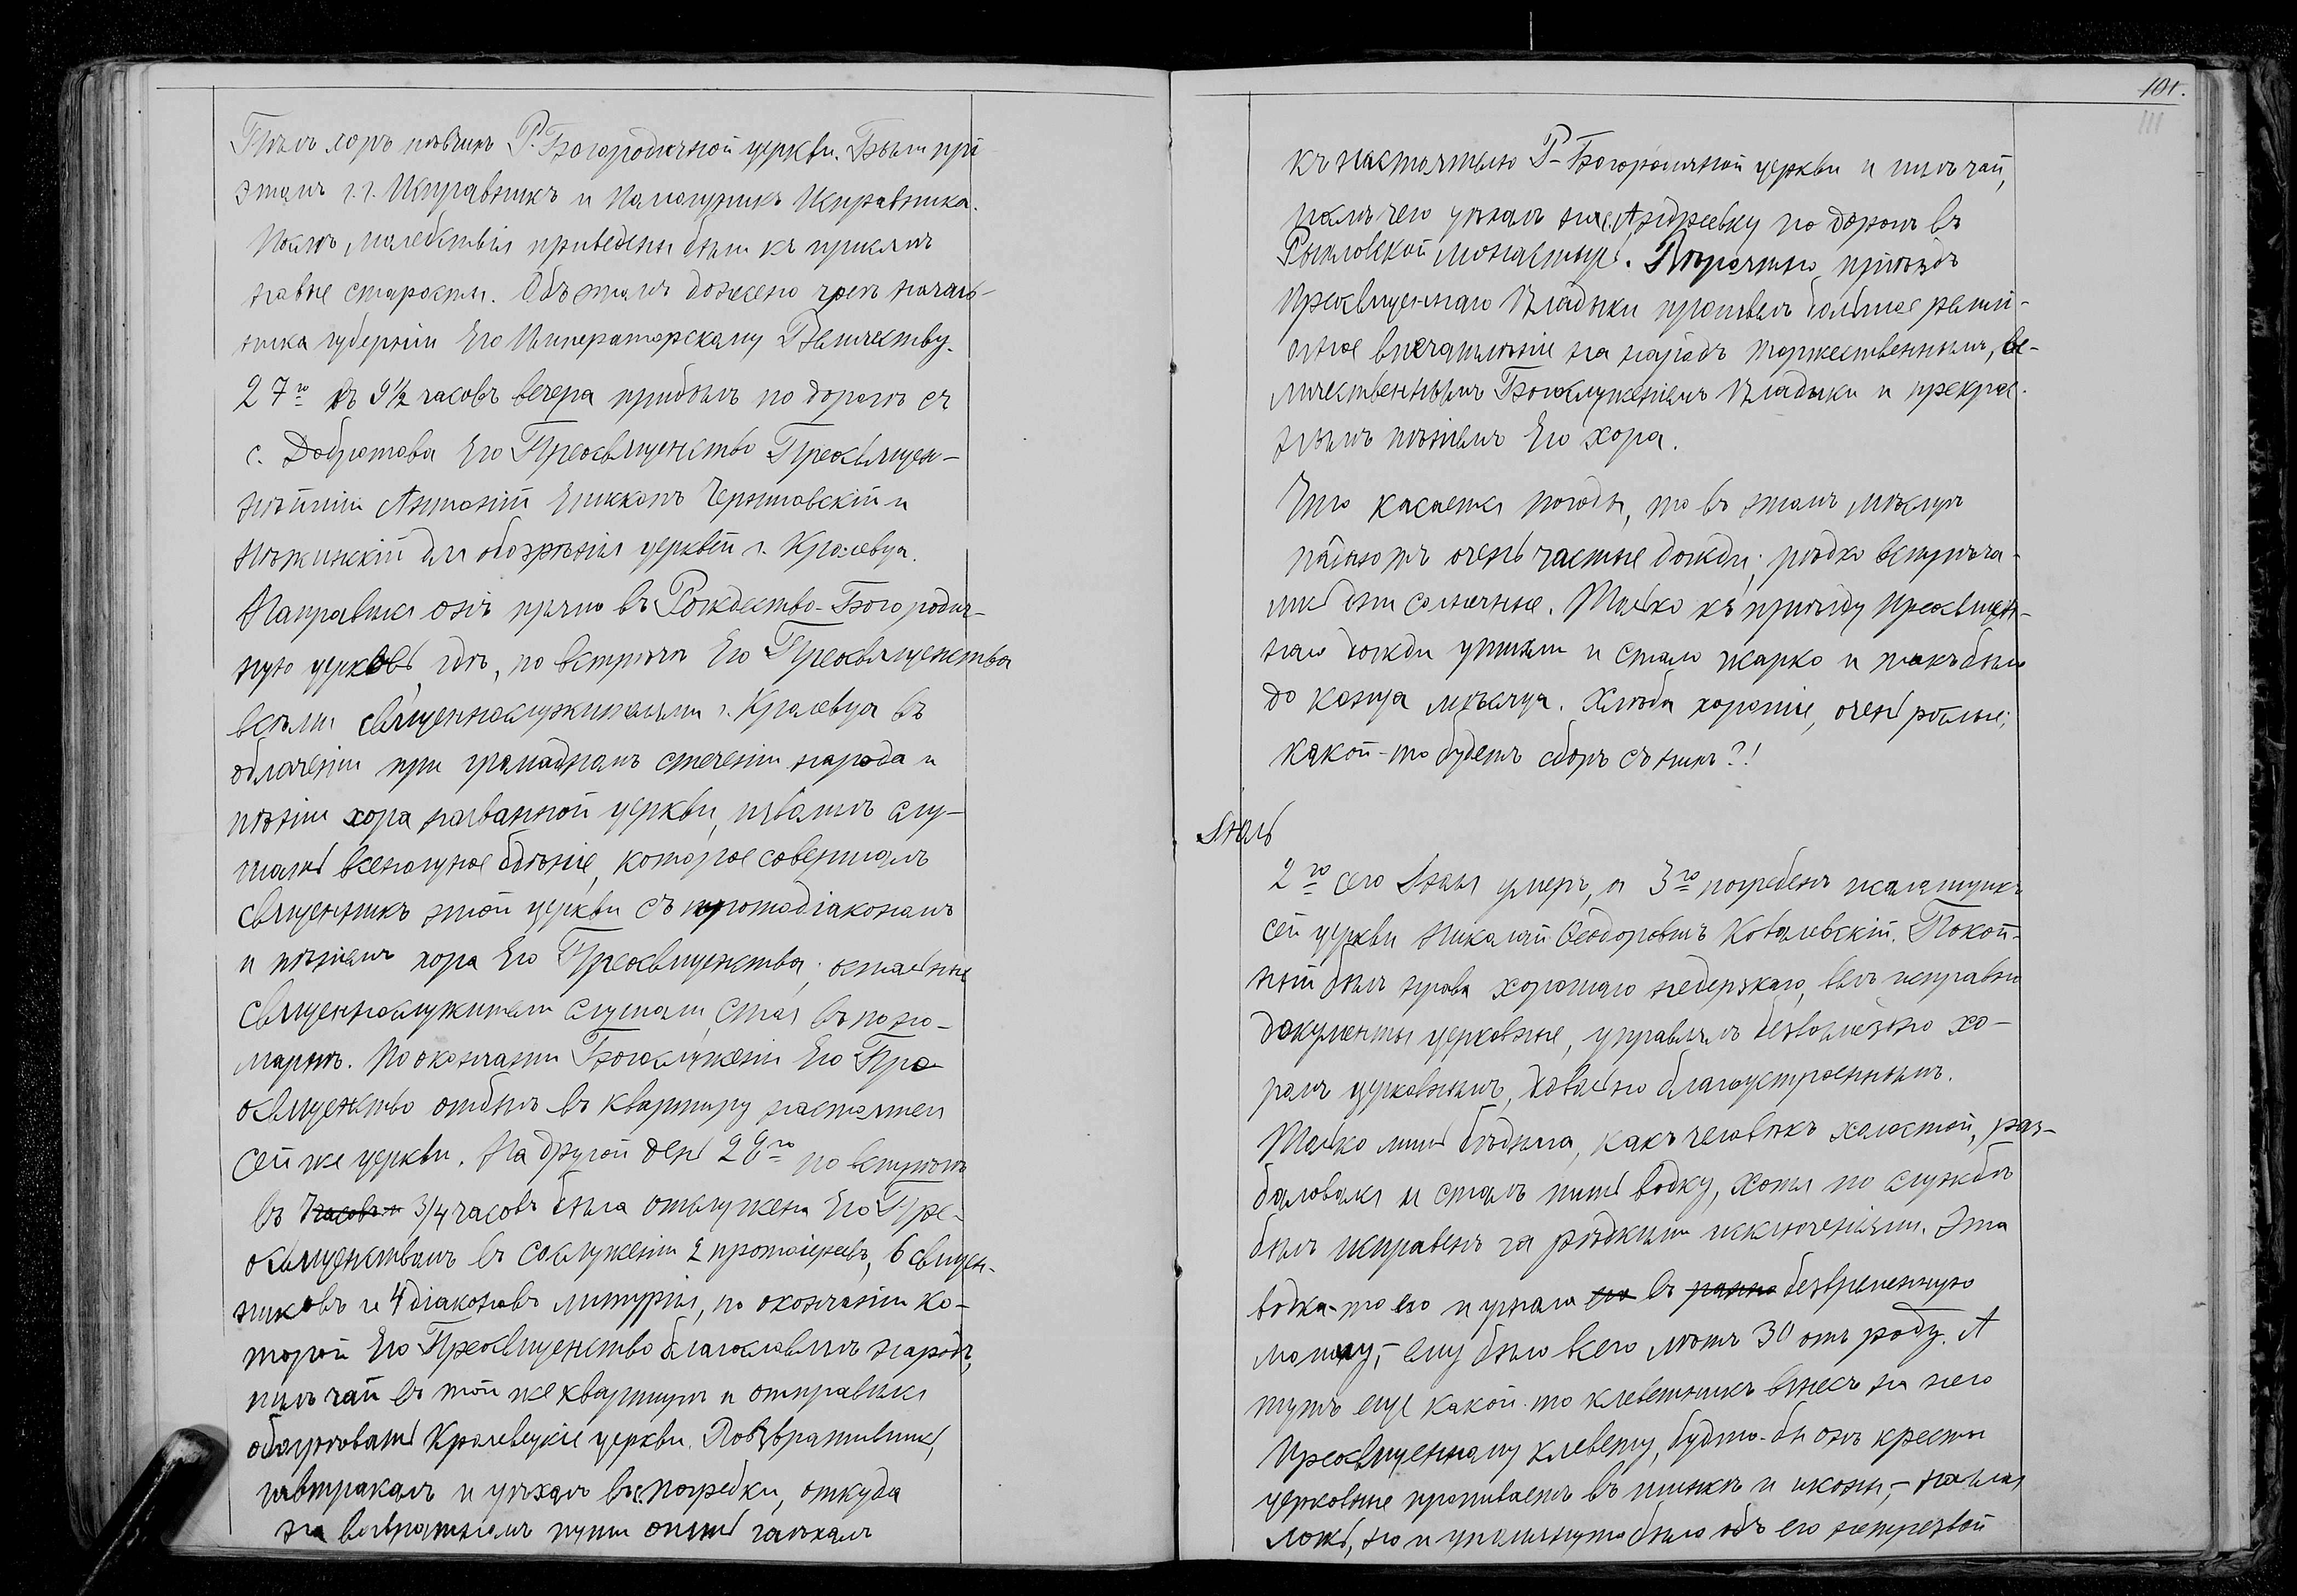 Пѣлъ хоръ пѣвчихъ Р. Богородичной церкви. Были при
этомъ г.г. Исправникъ и Помощникъ Исправника.
Послѣ молебствія приведены были къ присягѣ
новые старосты. Объ этомъ донесено чрезъ началь-
ника губерніи Его Императорскому Величеству.
27го въ 9½ часовъ вечера прибылъ по дорогѣ съ
с. Добротова Его Преосвященство Преосвящен-
нѣйшій Антоній Епископъ Черниговскій и
Нѣжинскій для обозрѣнія церквей г. Кролевца.
Направился онъ прямо въ Рождество-Богородич-
ную церковь, гдѣ, по встрѣчѣ Его Преосвященства
всѣми священнослужителями г. Кролевца въ
облаченіи при громадномъ стеченіи народа и
пѣніи хора названной церкви, изволилъ слу-
шать всенощное бдѣніе, которое совершалъ
священникъ этой церкви съ протодіакономъ
и пѣніемъ хора Его Преосвященства; остальные
священнослужители слушали, стоя въ поно-
марнѣ. По окончаніи Богослуженія Его Прео-
священство отбылъ въ квартиру настоятеля
сей же церкви. На другой день 28го по встрѣчѣ
въ часовъ и 3/4 часовъ была отслужена Его Пре-
освященствомъ въ сослуженіи 2 протоіереевъ, 6 священ-
никовъ и 4 діаконовъ литургія, по окончаніи ко-
торой Его Преосвященство благословилъ народъ,
пилъ чай въ той же квартирѣ и отправился
обозрѣвать Кролевецкіе церкви. Возвратившись,
завтракалъ и уѣхалъ въ с. Погребки, откуда
на возвратномъ пути опять заѣхалъ
101.
111
къ настоятелю Р-Богородичной церкви и пилъ чай,
послѣ чего уѣхалъ на с. Андреевку по дорогѣ въ
Рыхловской монастырь. Вѣроятно, пріѣздъ
Преосвященнаго Владыки произвелъ большое религі-
озное впечатлѣніе на народъ торжественнымъ, ве-
личественнымъ Богослуженіемъ Владыки и прекрас-
нымъ пѣніемъ Его хора.
Что касается погоды, то въ этомъ мѣсяцѣ
падаютъ очень частые дожди; рѣдко встрѣча-
лись дни солнечные. Только къ пріѣзду Преосвящен-
наго дожди утихли и стало жарко и такъ было
до конца мѣсяца. Хлѣба хорошіе, очень рослые;
какой-то будетъ сборъ съ нихъ?!
Іюль
2го сего Іюля умеръ, а 3го погребенъ псаломщикъ
сей церкви Николай Ѳеодоровичъ Ковалевскій. Покой-
ный былъ нрава хорошаго недерзкаго, велъ исправно
документы церковные, управлялъ безвозмездно хо-
ромъ церковнымъ, довольно благоустроеннымъ.
Только лишь бѣдняга, какъ человѣкъ холостой, раз-
баловался и сталъ пить водку, хотя по службѣ
былъ исправенъ за рѣдкими исключеніями. Эта
водка-то его и угнала его въ ранню безвременную
могилу,- ему было всего лѣтъ 30 отъ роду. А
тутъ еще какой-то клеветникъ взнесъ на него
Преосвященному клевету, будто-бы онъ кресты
церковные пропиваетъ въ шинкѣ и иконы,- наглая
ложь, но и упомянуто было объ его нетрезвой